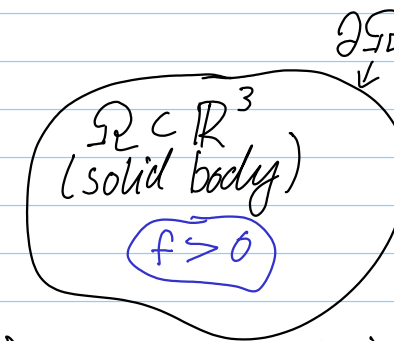 ∂Ω
Ω ⊂ ℝ³
(solid body)
f > 0